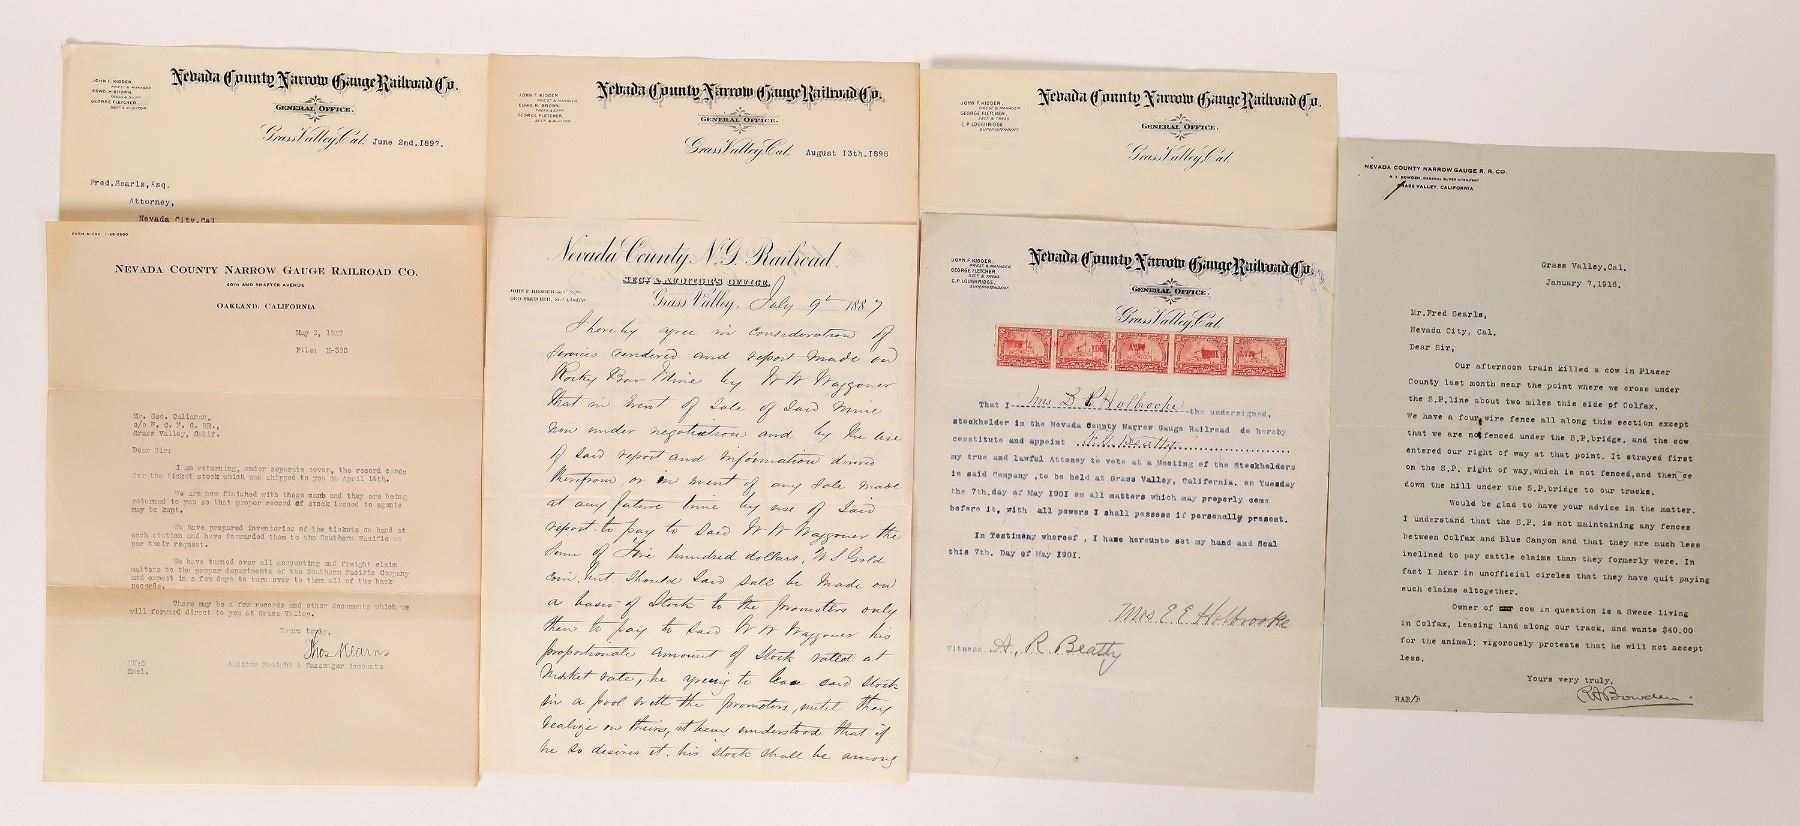 JOHN F. KIDDER,
PREST. & MANAGER
EDWD. H. BROWN,
TREAS & SUPT.
GEORGE FLETCHER,
SECT. & AUDITOR
Nevada County Narrow Gauge Railroad Co.
GENERAL OFFICE.
Grass Valley, Cal. June 2nd. 1897.
Fred. Searls, Esq.
Attorney,
Nevada City. Cal
JOHN F. KIDDER,
PREST. & MANAGER,
EDWD. H. BROWN,
TREAS & SUPT.
GEORGE FLETCHER,
SECT. & AUDITOR
Nevada County Narrow Gauge Railroad Co.
GENERAL OFFICE.
Grass Valley, Cal. August 13th. 1898
JOHN F. KIDDER,
PREST. & MANAGER.
GEORGE FLETCHER,
SECT. & TREAS.
C.P. LOUGHRIDGE,
SUPERINTENDENT.
Nevada County Narrow Gauge Railroad Co.
GENERAL OFFICE.
Grass Valley, Cal.
NEVADA COUNTY NARROW GAUGE RAILROAD CO.
40TH AND SHAFTER AVENUE
OAKLAND, CALIFORNIA
May 2, 1927
File: H-390
Mr. Geo. Callanan,
c/o N. C. N. G. RR.,
Grass Valley, Calif.
Dear Sir:
I am returning, under separate cover, the record cards
for the ticket stock which was shipped to you on April 16th.
We are now finished with these cards and they are being
returned to you so that proper record of stock issued to agents
may be kept.
We have prepared inventories of the tickets on hand at
each station and have forwarded them to the Southern Pacific as
per their request.
We have turned over all accounting and freight claim
matters to the proper departments of the Southern Pacific Company
and expect in a few days to turn over to them all of the back
records.
There may be a few records and other documents which we
will forward direct to you at Grass Valley.
Yours truly,
Thos Kearns
Auditor Freight & Passenger Accounts
TK:G
Encl.
Nevada County N. G. Railroad.
SECY & AUDITOR'S OFFICE.
JOHN F. KIDDER, Gen'l Supt.
GEO. FLETCHER, Sec'y & Auditor
Grass Valley, July 9th 1887
I hereby agree in consideration of
services rendered and report made on
Rocky Bar Mine by W W Waggoner
that in event of Sale of Said Mine
now under negotiation and by the use
of said report and information derived
therefrom or in event of any Sale made
at any future time by use of Said
report to pay to Said W W Waggoner the
Sum of Five hundred dollars, U S Gold
coin, but should Said sale be made on
a basis of Stock to the promoters only
then to pay to Said W W Waggoner his
proportionate amount of Stock rated at
Market rate, he agreeing to leave said Stock
in a pool with the promoters, until they
realize on theirs, it being understood that if
he so desires it his Stock shall be among
JOHN F. KIDDER,
PREST. & MANAGER
GEORGE FLETCHER,
SECT. & TREAS.
C.P. LOUGHRIDGE,
SUPERINTENDENT.
Nevada County Narrow Gauge Railroad Co.
GENERAL OFFICE.
Grass Valley, Cal.
That I Mrs E E Holbrooke the undersigned,
stockholder in the Nevada County Narrow Gauge Railroad do hereby
constitute and appoint
my true and lawful Attorney to vote at a Meeting of the Stockholders
in said Company ,to be held at Grass Valley, California. on Tuesday
the 7th.day of May 1901 on all matters which may properly come
before it, with all powers I shall possess if personally present.
In Testimony whereof , I have hereunto set my hand and Seal
this 7th. Day of May 1901.
Mrs. E. E. Holbrooke
Witness. A. R. Beatty
NEVADA COUNTY NARROW GAUGE R. R. CO.
R. A. BOWDEN, GENERAL SUPERINTENDENT
GRASS VALLEY, CALIFORNIA
Grass Valley, Cal.
January 7, 1916.
Mr. Fred Searls,
Nevada City, Cal.
Dear Sir,
Our afternoon train killed a cow in Placer
County last month near the point where we cross under
the S.P. line about two miles this side of Colfax.
We have a four wire fence all along this section except
that we are not fenced under the S.P. bridge, and the cow
entered our right of way at that point. It strayed first
on the S.P. right of way, which is not fenced, and thence
down the hill under the S.P. bridge to our tracks.
Would be glad to have your advice in the matter.
I understand that the S.P. is not maintaining any fences
between Colfax and Blue Canyon and that they are much less
inclined to pay cattle claims than they formerly were. In
fact I hear in unofficial circles that they have quit paying
such claims altogether.
Owner of cow in question is a Swede living
in Colfax, leasing land along our track, and wants $40.00
for the animal; vigorously protests that he will not accept
less.
Yours very truly,
R A Bowden.
RAB/B